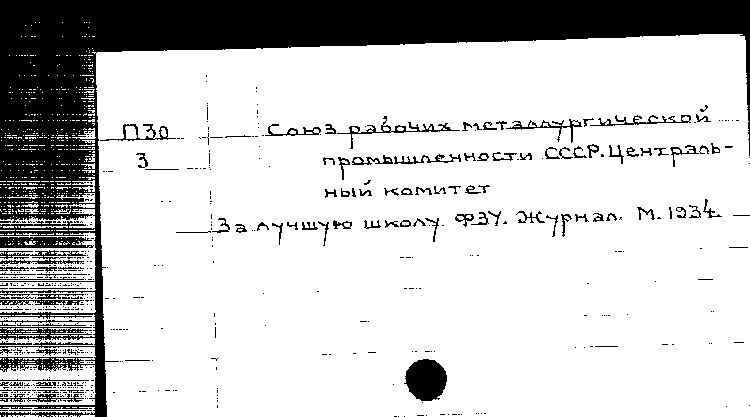 П30 Союз рабочих металлургической
3 промышленности СССР. Централь-
ный комитет
За лучшую школу ФЗУ. Журнал. М. 1934.